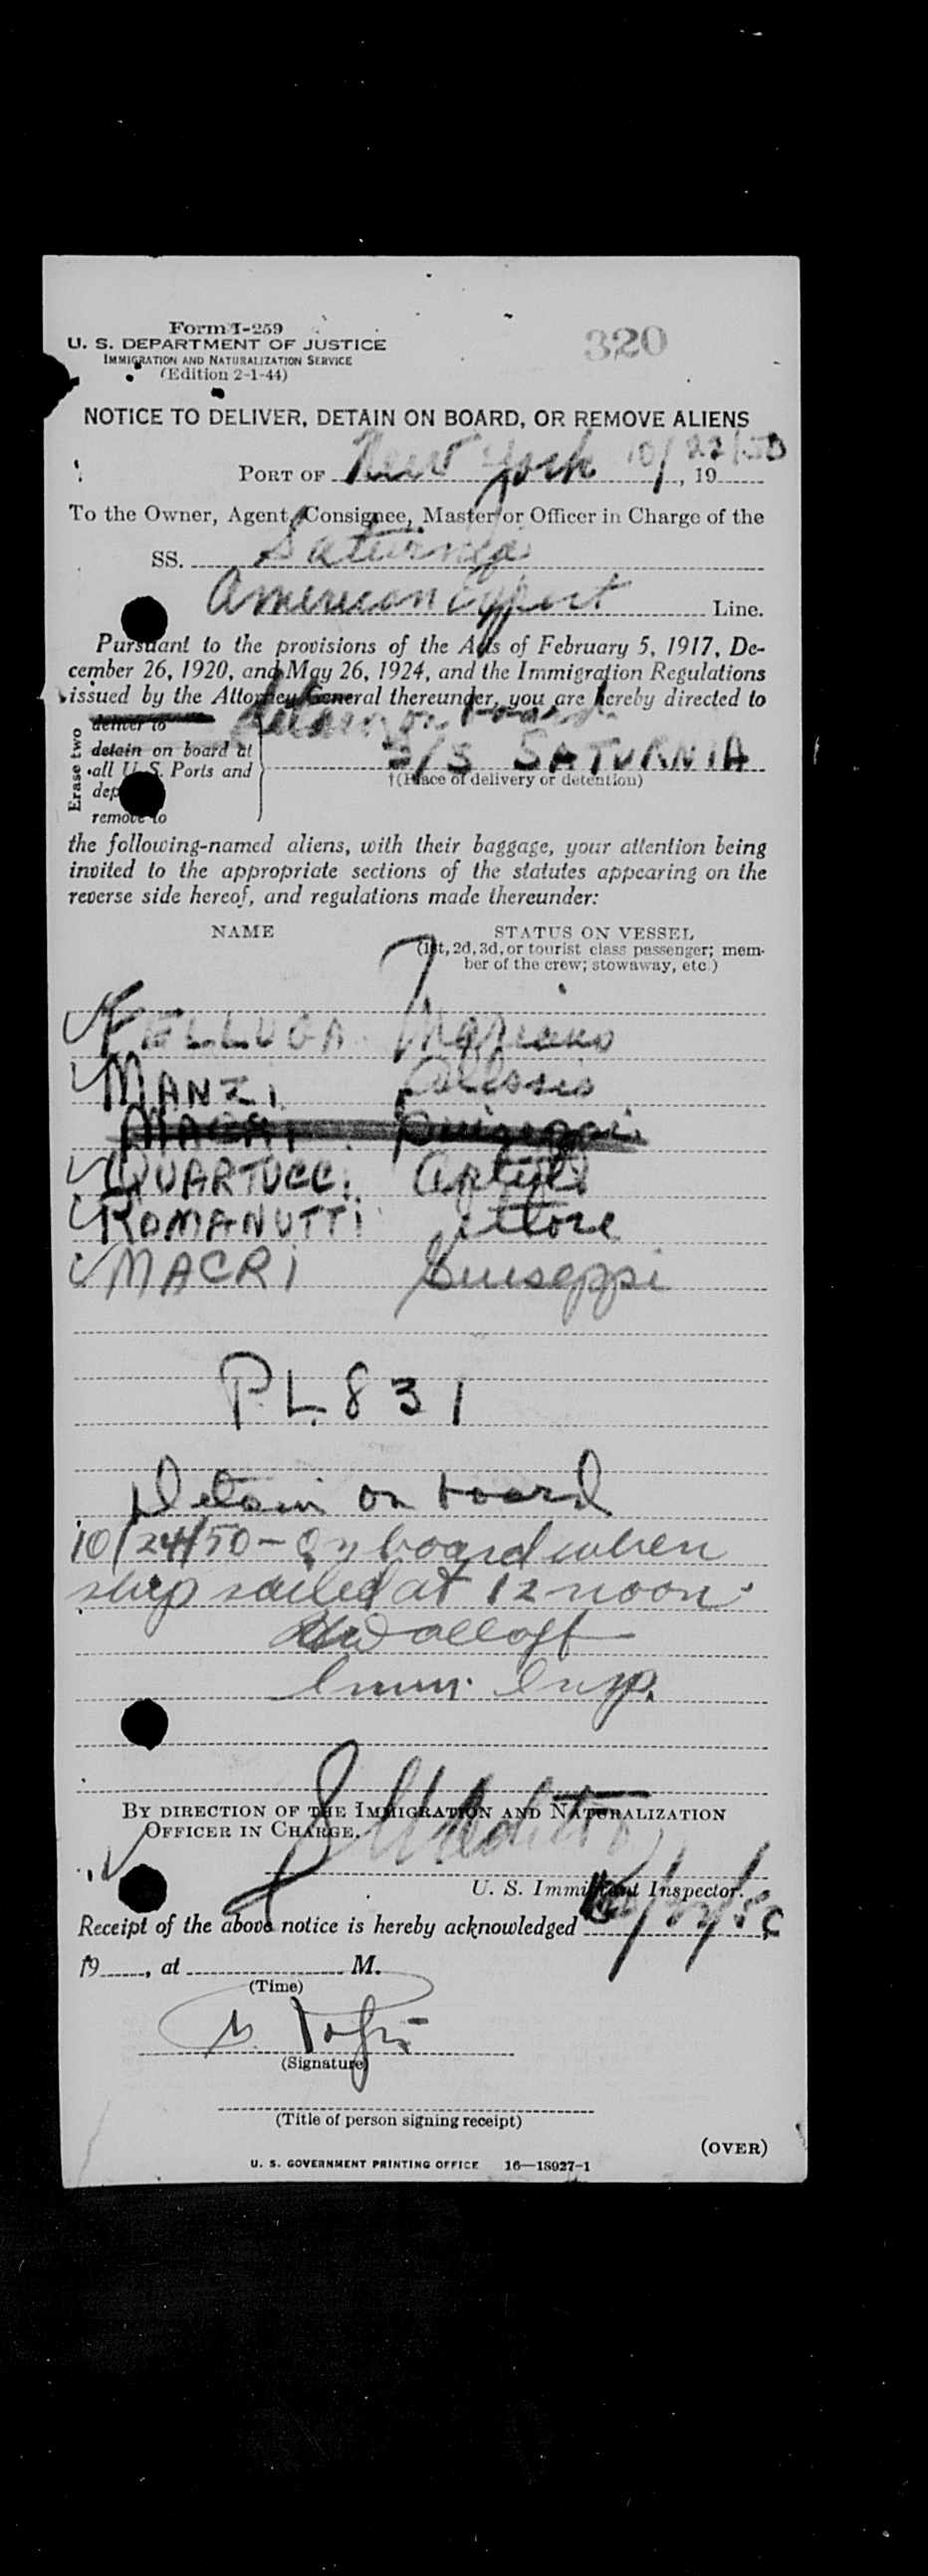 Form I-259
U. S. DEPARTMENT OF JUSTICE
IMMIGRATION AND NATURALIZATION SERVICE
(Edition 2-1-44)
320
NOTICE TO DELIVER, DETAIN ON BOARD, OR REMOVE ALIENS
PORT OF New York 10/22/50, 19
To the Owner, Agent, Consignee, Master or Officer in Charge of the
SS. Saturnia
American Export Line.
Pursuant to the provisions of the Acts of February 5, 1917, De-
cember 26, 1920, and May 26, 1924, and the Immigration Regulations
issued by the Attorney General thereunder, you are hereby directed to
Erase two
deliver to
detain on board at
all U. S. Ports and
remove to
detain on board
S/S SATURNIA
†(Place of delivery or detention)
the following-named aliens, with their baggage, your attention being
invited to the appropriate sections of the statutes appearing on the
reverse side hereof, and regulations made thereunder:
NAME
STATUS ON VESSEL
(1st, 2d, 3d, or tourist class passenger; mem-
ber of the crew; stowaway, etc.)
Mariano
MANZI Alessio
MACRI Guiseppi
QUARTUCCI
ROMANUTTI Ettore
MACRI Guiseppi
P.L. 831
Detain on board
10/24/50 - On board when
ship sailed at 12 noon
Imm. Insp.
BY DIRECTION OF THE IMMIGRATION AND NATURALIZATION
OFFICER IN CHARGE.
U. S. Immigrant Inspector.
Receipt of the above notice is hereby acknowledged
19, at M.
(Time)
(Signature)
(Title of person signing receipt)
(OVER)
U. S. GOVERNMENT PRINTING OFFICE 16—18927-1